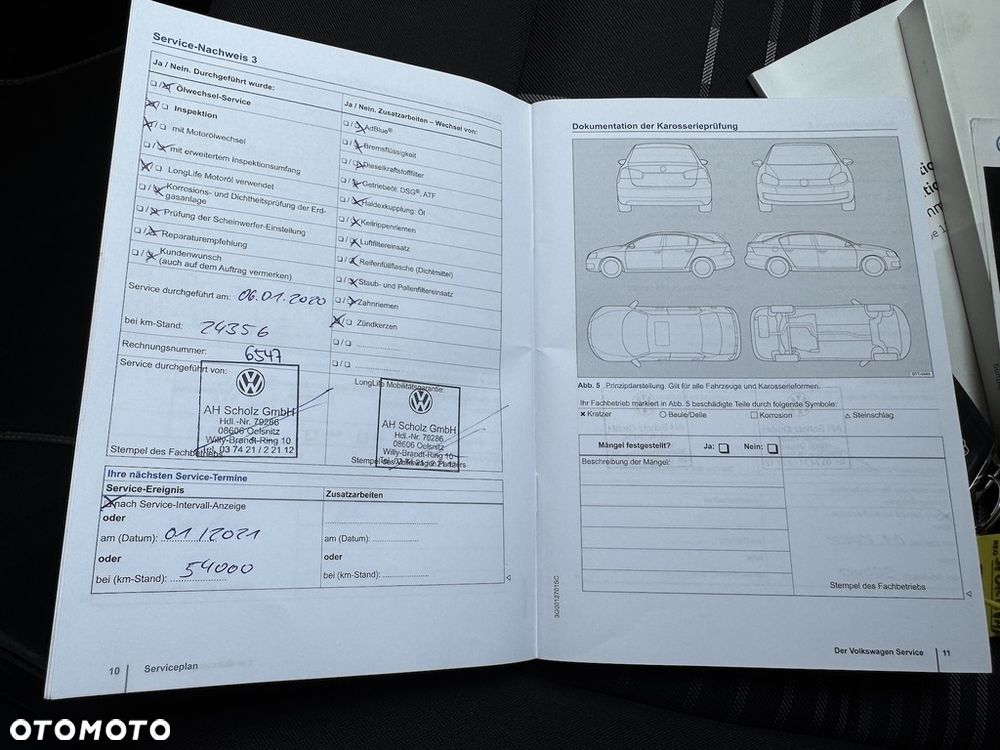 Service-Nachweis 3
Ja / Nein. Durchgeführt wurde:
Ölwechsel-Service
Inspektion
mit Motorölwechsel
mit erweitertem Inspektionsumfang
LongLife Motoröl verwendet
Korrosions- und Dichtheitsprüfung der Erd-
gasanlage
Prüfung der Scheinwerfer-Einstellung
Reparaturempfehlung
Kundenwunsch
(auch auf dem Auftrag vermerken)
Service durchgeführt am: 06.01.2020
bei km-Stand: 24356
Rechnungsnummer: 6547
Service durchgeführt von:
AH Scholz GmbH
Hdl.-Nr. 79286
08606 Oelsnitz
Willy-Brandt-Ring 10
Tel. 03 74 21 / 2 21 12
Stempel des Fachbetriebs
Ja / Nein. Zusatzarbeiten – Wechsel von:
AdBlue®
Bremsflüssigkeit
Dieselkraftstofffilter
Getriebeöl: DSG®, ATF
Haldexkupplung: Öl
Keilrippenriemen
Luftfiltereinsatz
Reifenfüllflasche (Dichtmittel)
Staub- und Pollenfiltereinsatz
Zahnriemen
Zündkerzen
LongLife Mobilitätsgarantie:
AH Scholz GmbH
Hdl.-Nr. 79286
08606 Oelsnitz
Willy-Brandt-Ring 10
Tel. 03 74 21 / 2 21 12
Stempel des Volkswagen Partners
Ihre nächsten Service-Termine
Service-Ereignis
Zusatzarbeiten
nach Service-Intervall-Anzeige
oder
am (Datum): 01/2021
oder
bei (km-Stand): 54000
am (Datum):
oder
bei (km-Stand):
10 Serviceplan
Dokumentation der Karosserieprüfung
BTT-0440
Abb. 5 Prinzipdarstellung. Gilt für alle Fahrzeuge und Karosserieformen.
Ihr Fachbetrieb markiert in Abb. 5 beschädigte Teile durch folgende Symbole:
Kratzer Beule/Delle Korrosion Steinschlag
Mängel festgestellt? Ja: Nein:
Beschreibung der Mängel:
Stempel des Fachbetriebs
3G0012701SC
Der Volkswagen Service 11
OTOMOTO